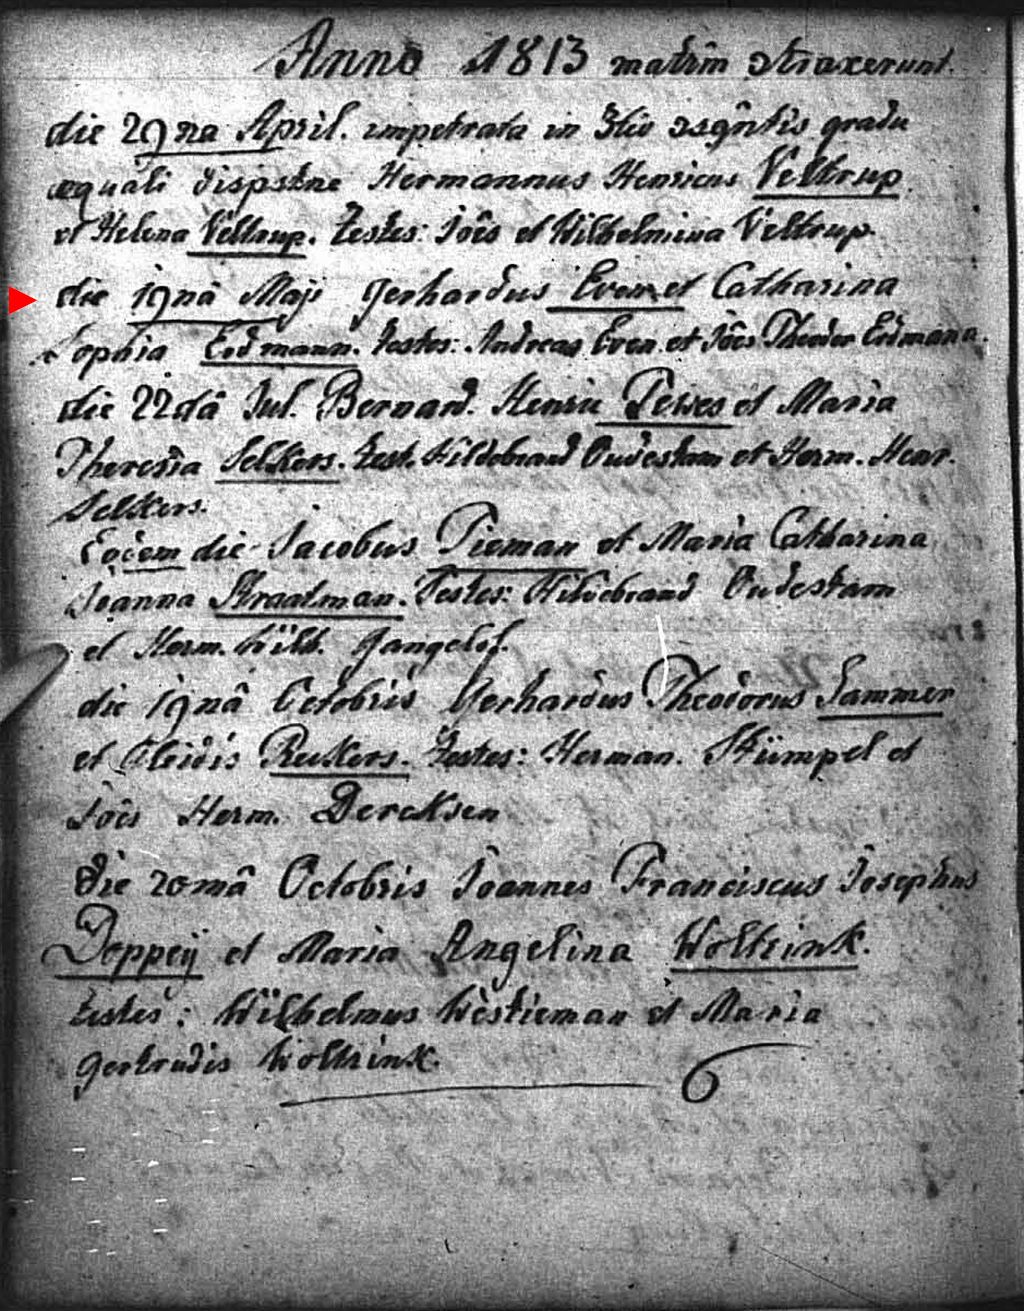 Anno 1813 matrim ctraxerunt.
die 29na April. impetrata in 3tio csgntis gradu
æquali dispstne Hermannus Henricus Veltrup
et Helena Veltrup. Testes: Joês et Wilhelmina Veltrup.
die 19nâ Maji Gerhardus Even et Catharina
Sophia Erdmann. Testes: Andreas Even et Joês Theodor Erdmann.
die 22dâ Jul. Bernard. Henric Tewes et Maria
Theresia Selkers. Test. Hildebrand Oudestam et Herm. Henr.
Selkers.
Eodem die Jacobus Tieman et Maria Catharina
Joanna Straatman. Testes: Hildebrand Oudestam
et Herm. Wilh. Gangelof.
die 19nâ Octobris Gerhardus Theodorus Lammer
et Aleidis Reukers. Testes: Herman. Stümpel et
Joês Herm. Dercksen
Die 20mâ Octobris Joannes Franciscus Josephus
Doppeÿ et Maria Angelina Woltrink.
testes: Wilhelmus Westieman et Maria
Gertrudis Woltrink.